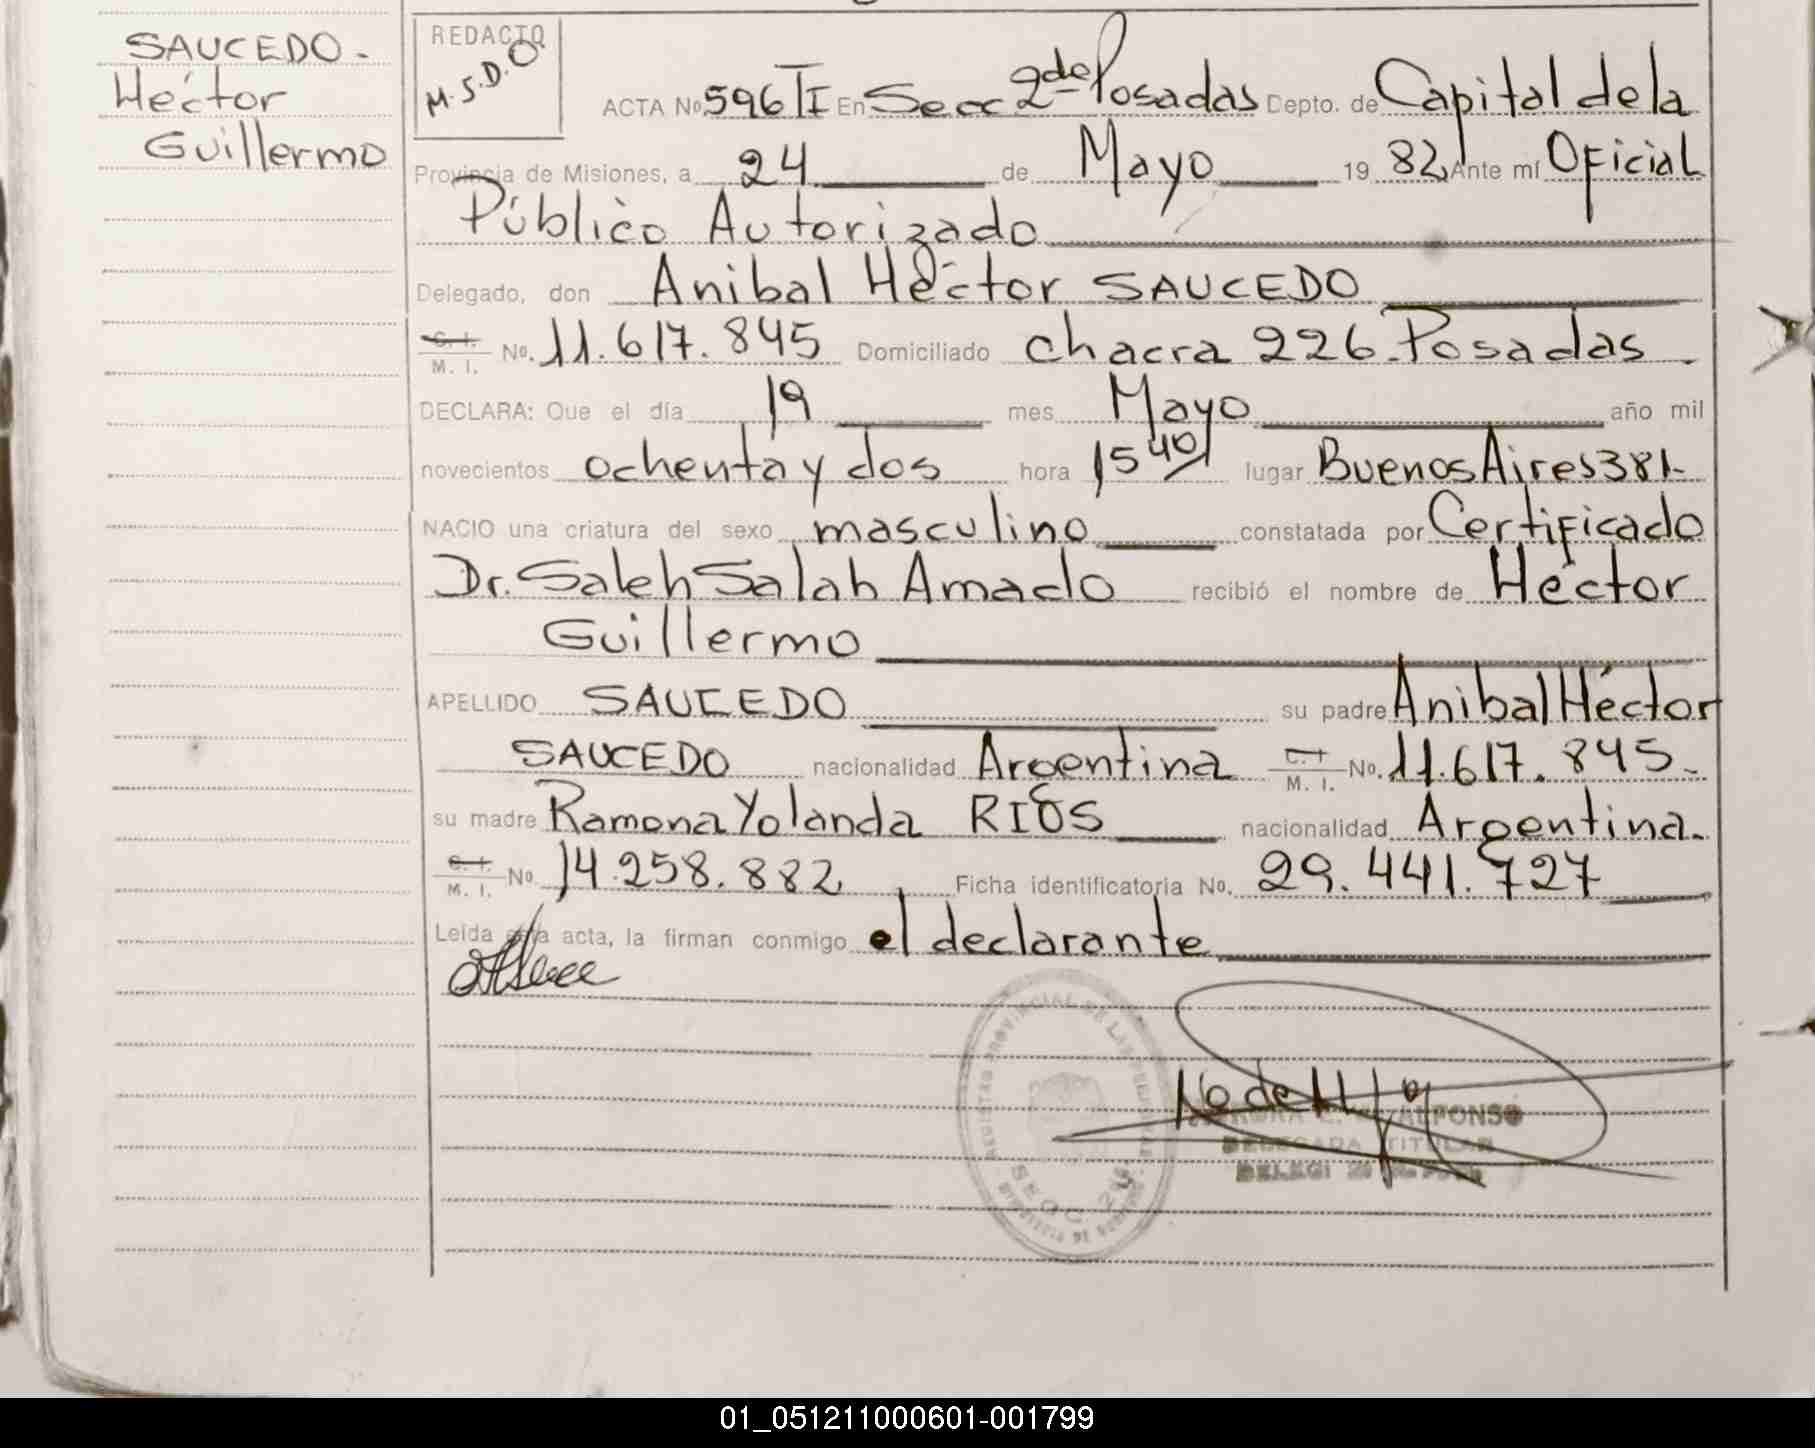 SAUCEDO.
Héctor
Guillermo
REDACTO
M.S.D.O
ACTA No 596 TI En Secc 2da Posadas Depto. de Capital de la
Provincia de Misiones, a 24 de Mayo 19 82, Ante mí Oficial
Público Autorizado
Delegado, don Anibal Héctor SAUCEDO
C. I. M. I. No. 11.617.845 Domiciliado chacra 226. Posadas.
DECLARA: Que el día 19 mes Mayo año mil
novecientos ochenta y dos hora 15 40 lugar Buenos Aires 381-
NACIO una criatura del sexo masculino constatada por Certificado
Dr. Saleh Salah Amado recibió el nombre de Héctor
Guillermo
APELLIDO SAUCEDO su padre Anibal Héctor
SAUCEDO nacionalidad Argentina C. I. M. I. No. 11.617.845.
su madre Ramona Yolanda RIOS nacionalidad Argentina.
C. I. M. I. No. 14.258.882 Ficha identificatoria No. 29.441.727
Leída esta acta, la firman conmigo el declarante
ALFONSO
DELEGADA TITULAR
SECC. 2
01_051211000601-001799